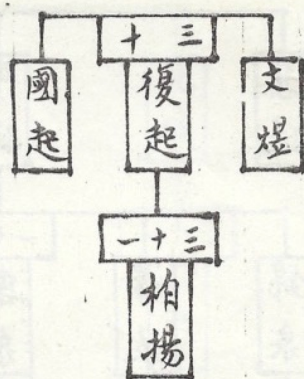 三十
文煜
復起
國起
三十一
柏揚